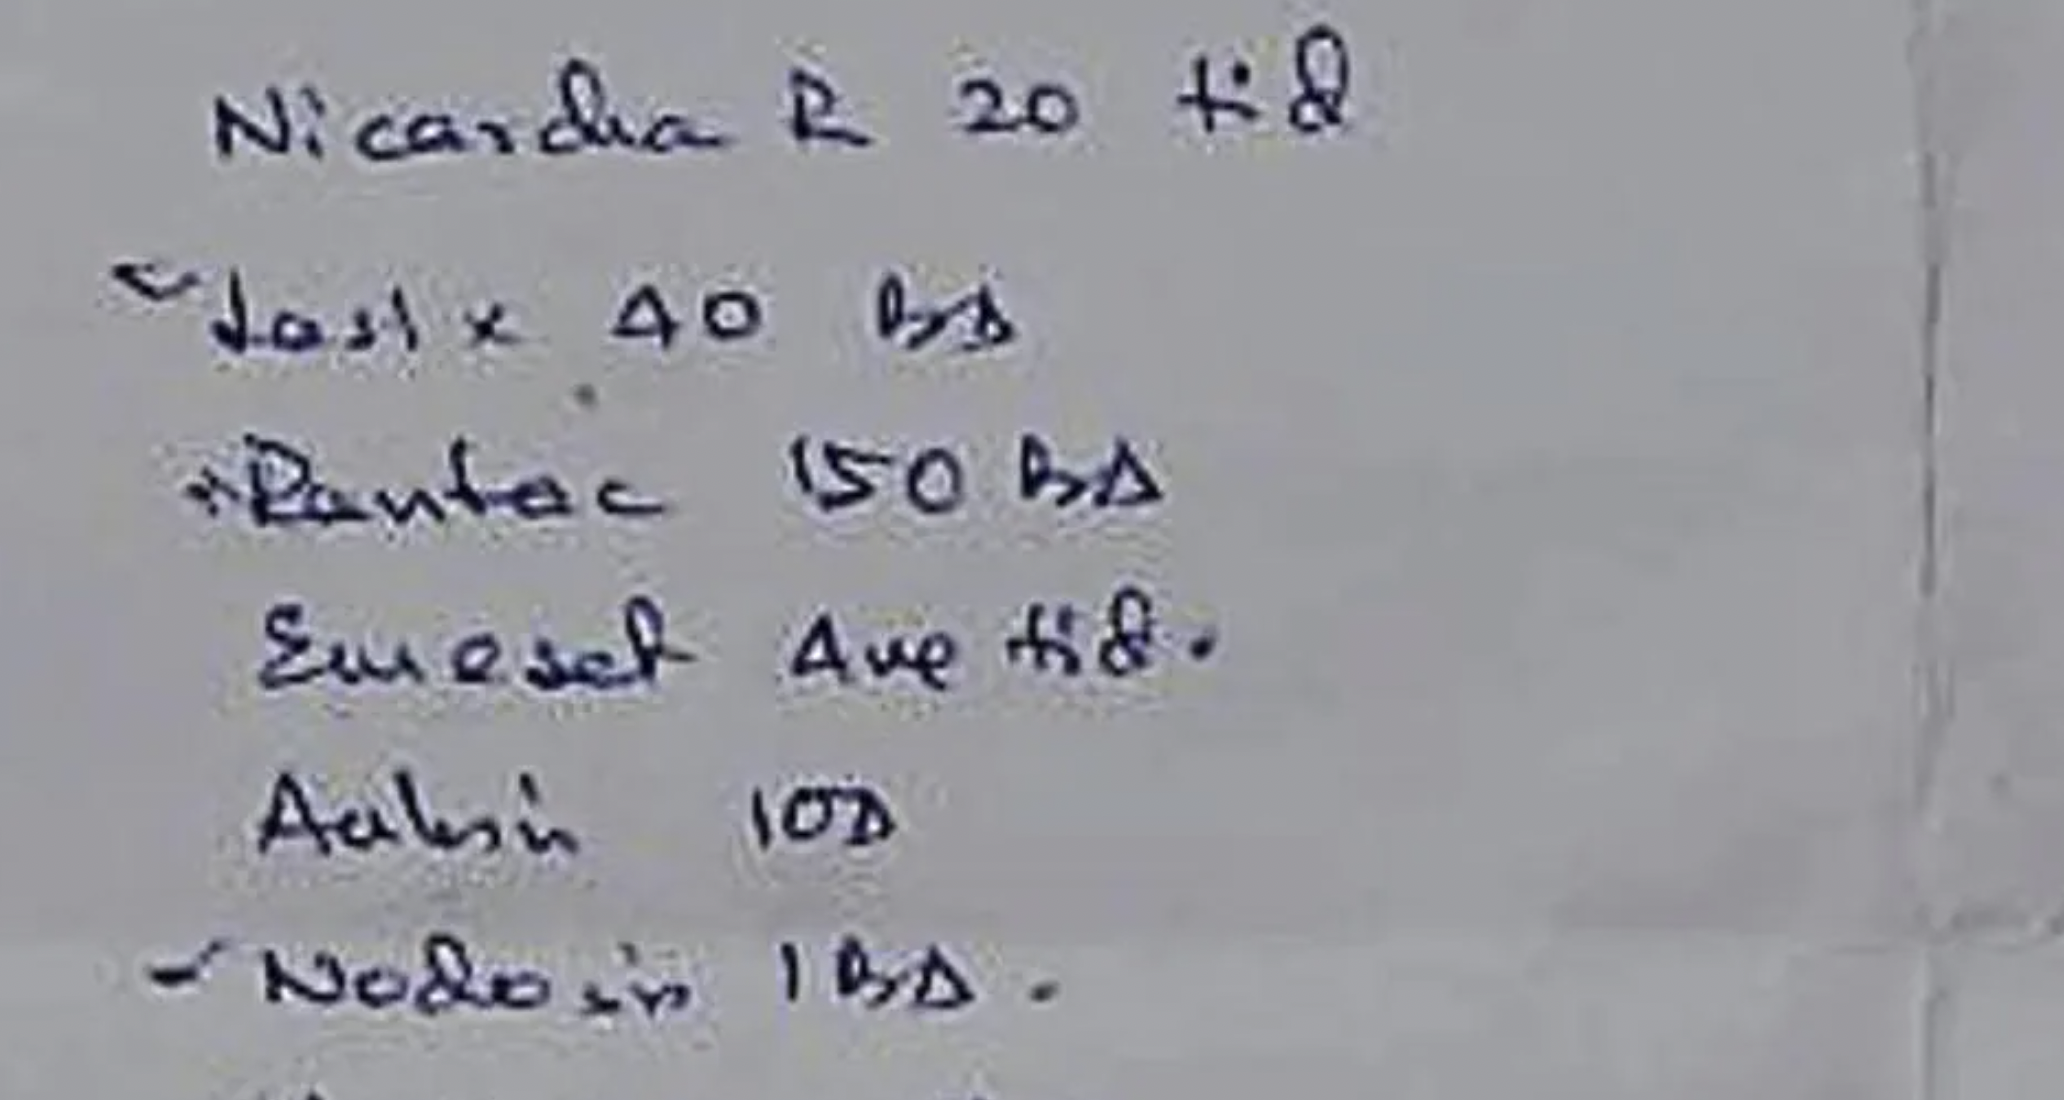 Nicardia R 20 tid
Lasix 40 BD
Rantac 150 BD
Emeset Ave tid.
1OD
Nodosin 1 BD.